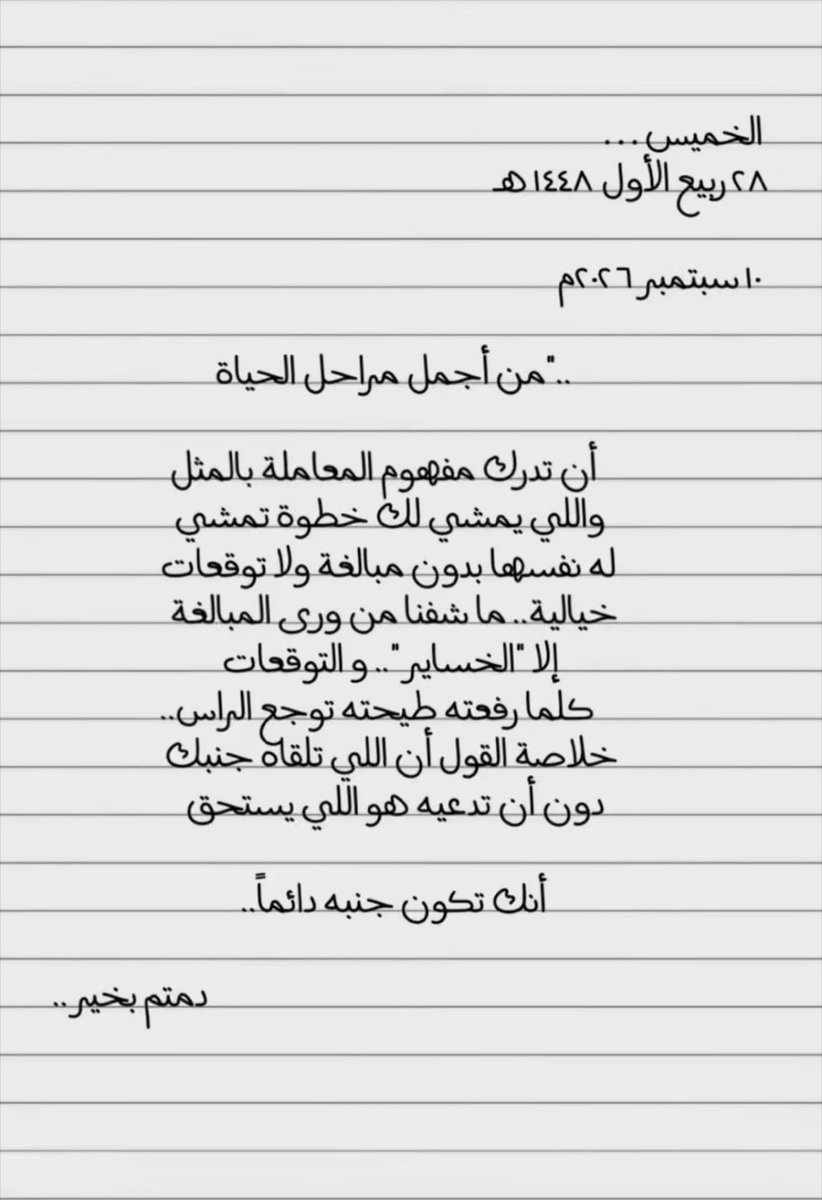 الخميس...
٢٨ ربيع الأول ١٤٤٨هـ
١٠ سبتمبر ٢٠٢٦م
.."من أجمل مراحل الحياة
أن تدرك مفهوم المعاملة بالمثل
واللي يمشي لك خطوة تمشي
له نفسها بدون مبالغة ولا توقعات
خيالية.. ما شفنا من ورى المبالغة
إلا "الخساير".. و التوقعات
كلما رفعته طيحته توجع الراس..
خلاصة القول أن اللي تلقاه جنبك
دون أن تدعيه هو اللي يستحق
أنك تكون جنبه دائماً.."
دمتم بخير..